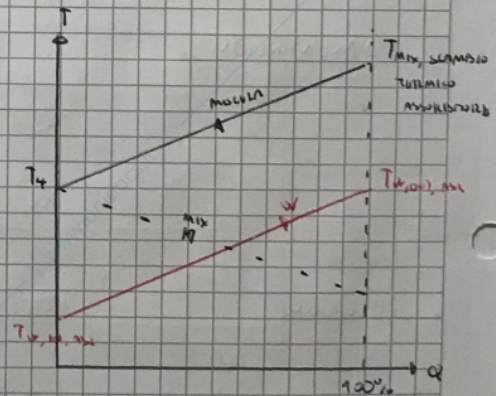 T
T MIX, SCAMBIO
TERMICO
ASSORBITORE
MISCELA
T4
TW,OUT,ASS
W
MIX
TW,IN,ASS
Q
100%